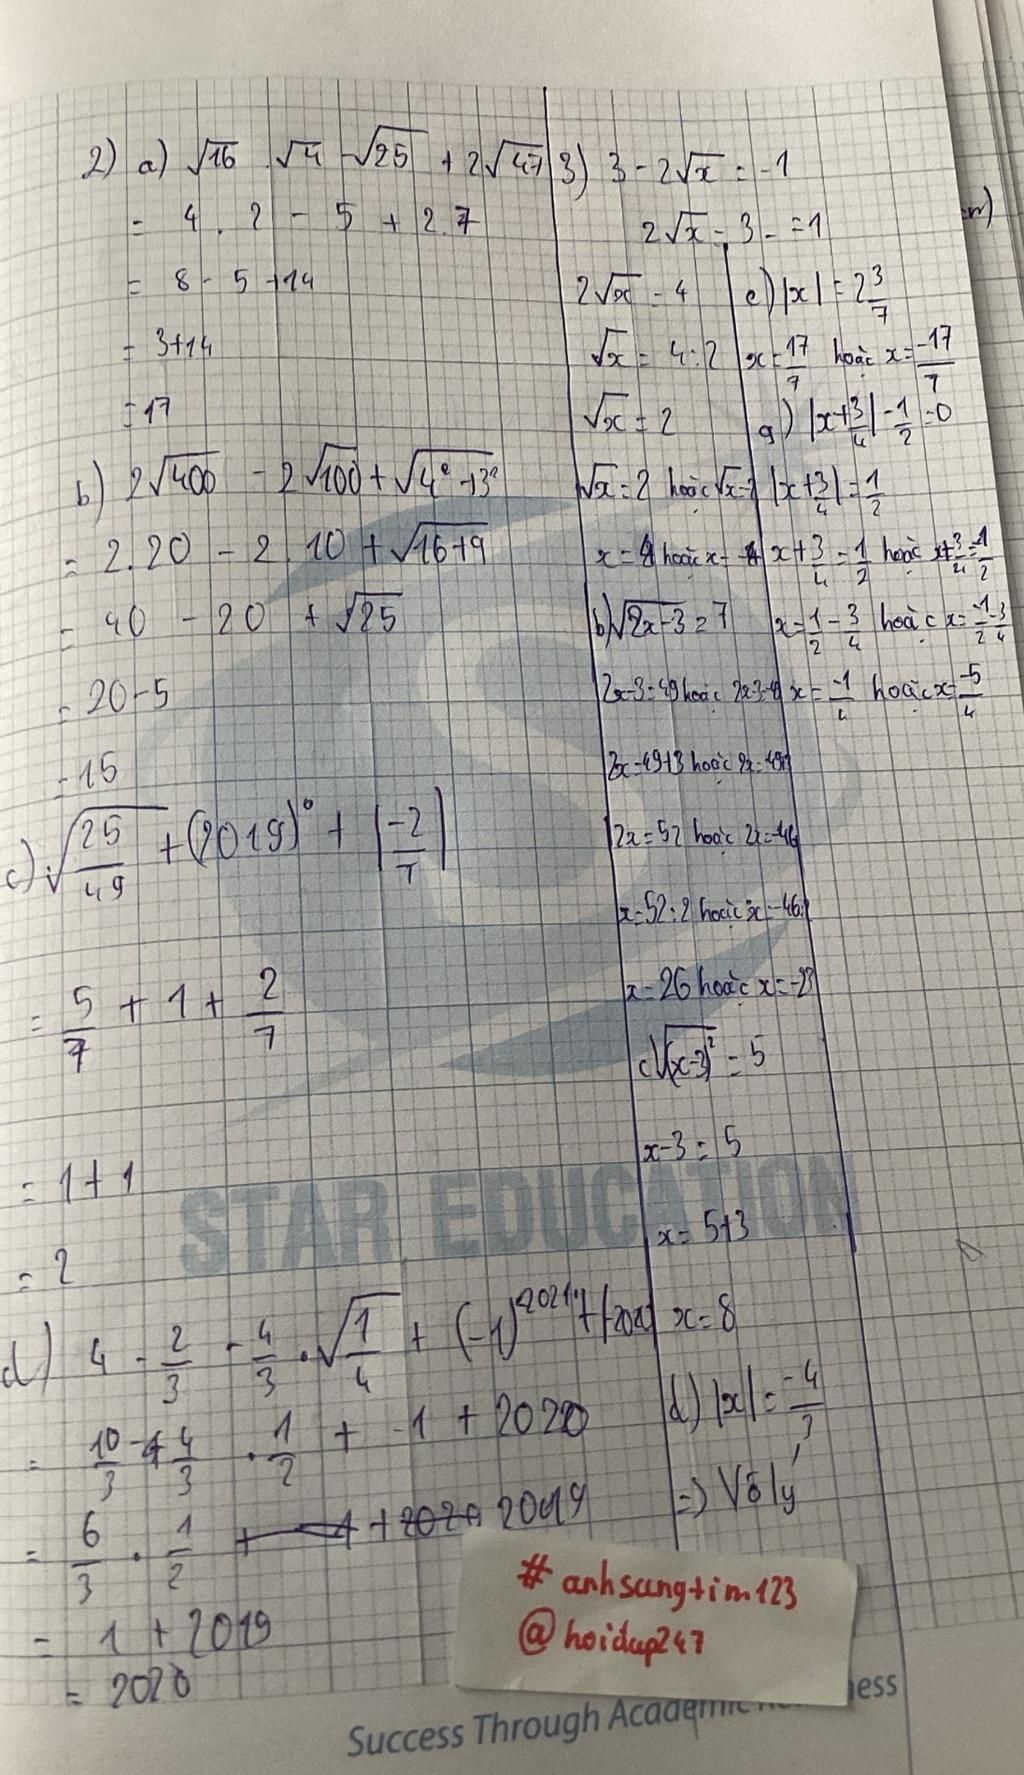 2) a) √16 . √4 - √25 + 2√47
= 4 . 2 - 5 + 2.7
= 8 - 5 + 14
= 3+14
= 17
b) 2√400 - 2√100 + √4² +3²
= 2.20 - 2.10 + √16+9
= 40 - 20 + √25
= 20-5
= 15
c) √25/49 + (2019)⁰ + |-2/7|
= 5/7 + 1 + 2/7
= 1+1
= 2
d) 4 - 2/3 - 4/3 . √1/4 + (-1)
= 10/3 - 4/3 . 1/2 + -1 + 2020
= 6/3 . 1/2 2019
= 1 + 2019
= 2020
3) 3 - 2√x = -1
2√x - 3 - = 1
2√x = 4
√x = 4:2
√x = 2
√x = 2 hoặc √x =
x = hoặc x =
b) √2x-3 = 7
2x-3=49 hoặc
2x=49+3 hoặc
2x=52 hoặc 2x=-46
x=52:2 hoặc x=-46:2
x=26 hoặc x=-23
c) √(x-3)² = 5
x-3 = 5
x= 5+3
x=8
d) |x| = -4/3
=) Vô lý
e) |x| = 2 3/7
x = 17/7 hoặc x = -17/7
g) |x+3/4| - 1/2 = 0
|x+3/4| = 1/2
x+3/4 = 1/2 hoặc x+3/4 = -1/2
x = 1/2 - 3/4 hoặc x = -1/2 - 3/4
x = -1/4 hoặc x = -5/4
STAR EDUCATION
# anhsangtim123
@ hoidap247
Success Through Academic